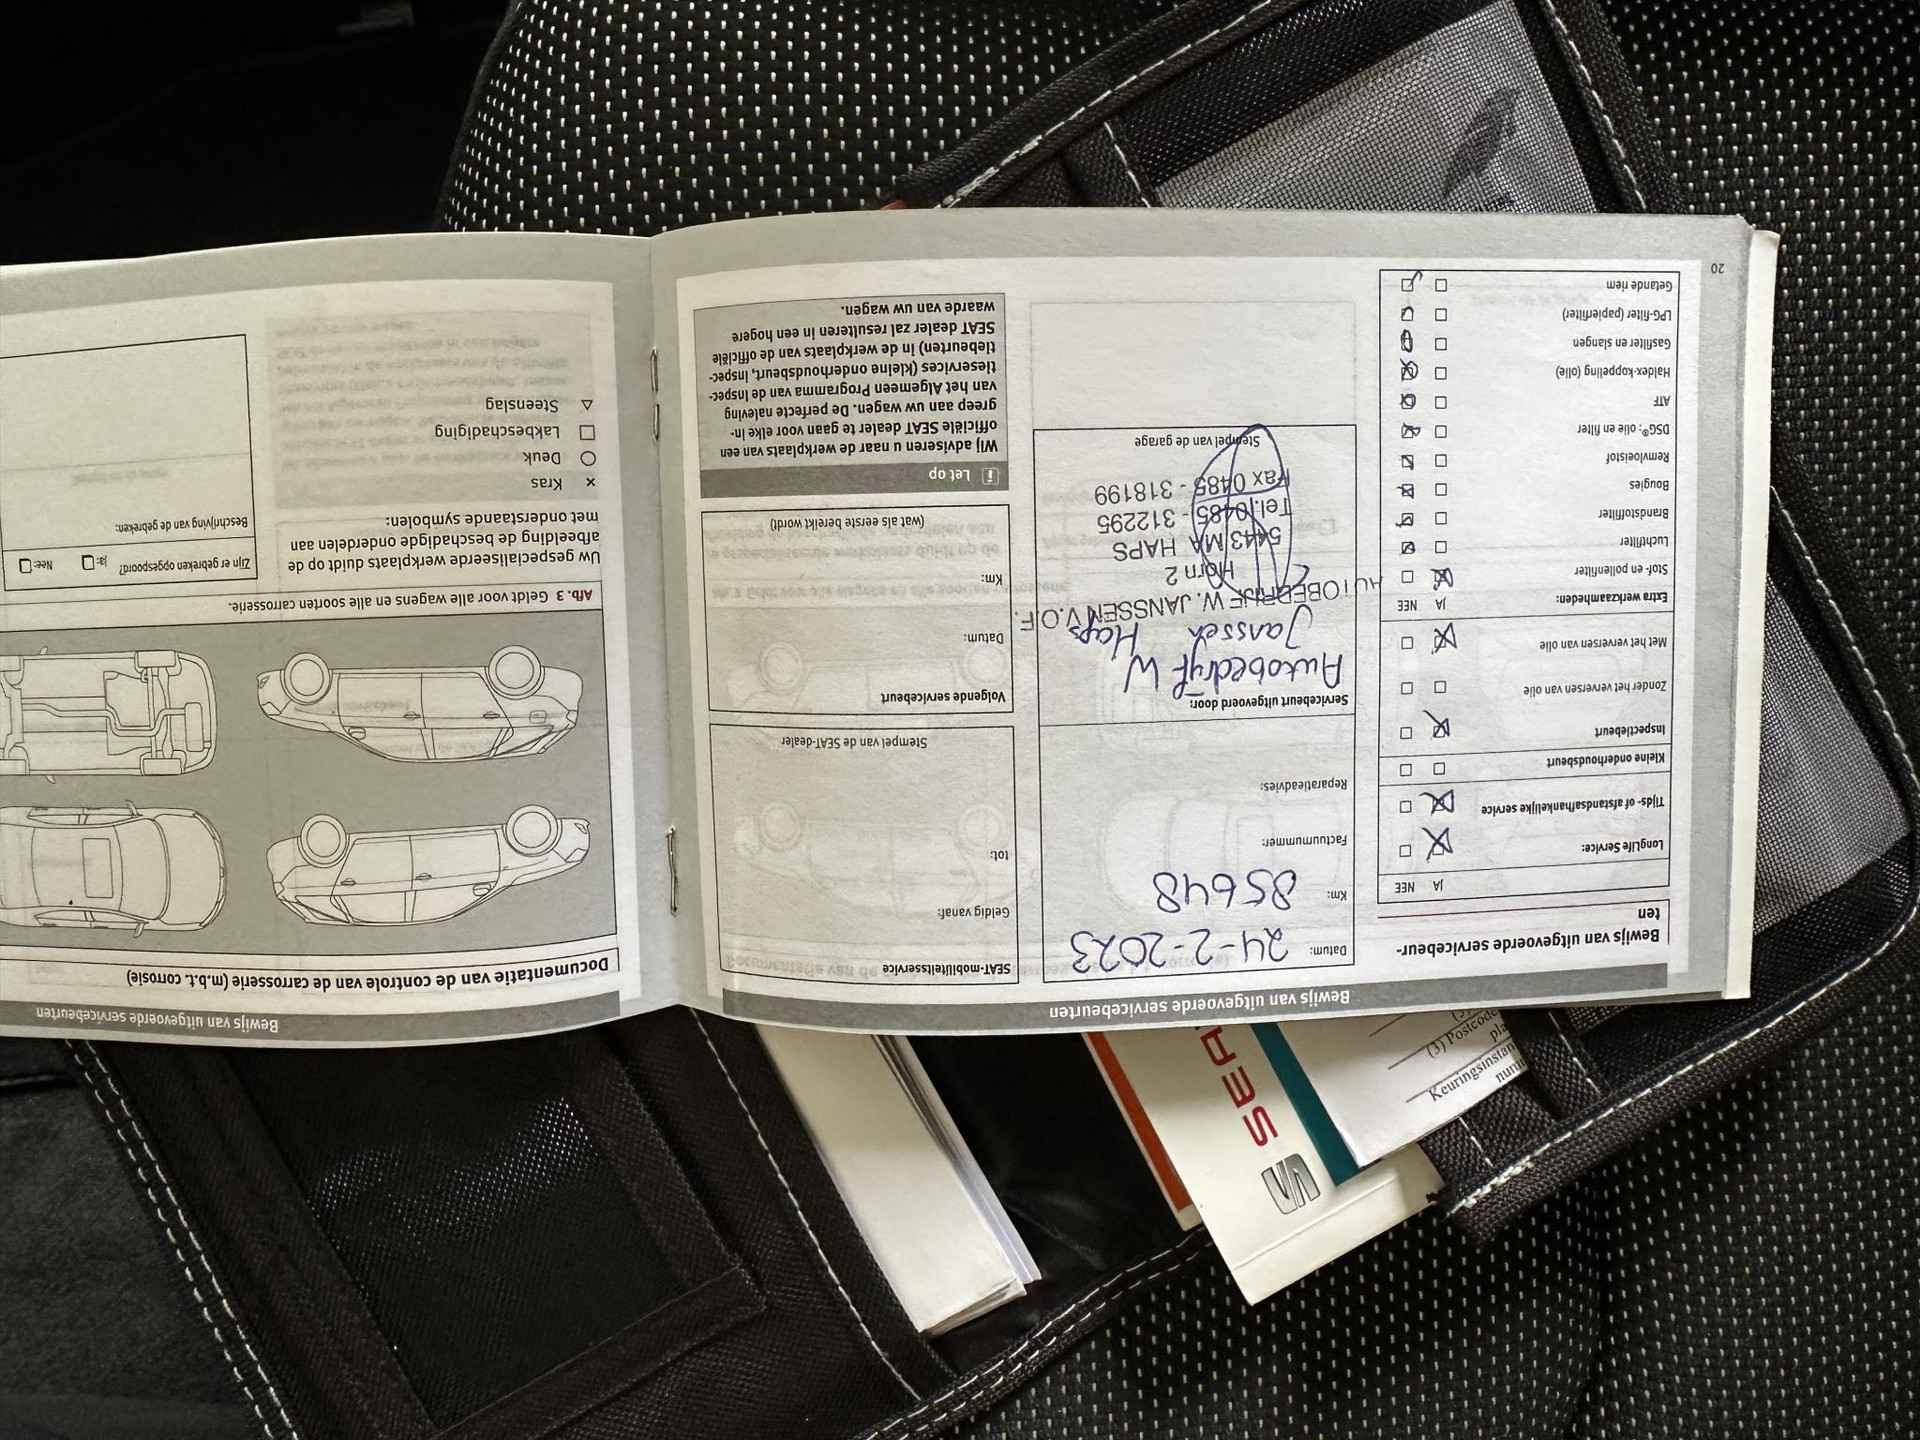 Bewijs van uitgevoerde servicebeurten
Bewijs van uitgevoerde servicebeur-
ten
JA NEE
LongLife Service:
Tijds- of afstandsafhankelijke service
Kleine onderhoudsbeurt
Inspectiebeurt
Zonder het verversen van olie
Met het verversen van olie
Extra werkzaamheden: JA NEE
Stof- en pollenfilter
Luchtfilter
Brandstoffilter
Bougies
Remvloeistof
DSG®: olie en filter
ATF
Haldex-koppeling (olie)
Gasfilter en slangen
LPG-filter (papierfilter)
Getande riem
20
Datum: 24-2-2023
Km: 85648
Factuurnummer:
Reparatieadvies:
Servicebeurt uitgevoerd door:
Autobedrijf W
Janssen Haps
AUTOBEDRIJF W. JANSSEN V.O.F.
Horn 2
5443 MA HAPS
Tel. 0485 - 312295
Fax 0485 - 318199
Stempel van de garage
SEAT-mobiliteitsservice
Geldig vanaf:
tot:
Stempel van de SEAT-dealer
Volgende servicebeurt
Datum:
Km:
(wat als eerste bereikt wordt)
i Let op
Wij adviseren u naar de werkplaats van een
officiële SEAT dealer te gaan voor elke in-
greep aan uw wagen. De perfecte naleving
van het Algemeen Programma van de Inspec-
tieservices (kleine onderhoudsbeurt, Inspec-
tiebeurten) in de werkplaats van de officiële
SEAT dealer zal resulteren in een hogere
waarde van uw wagen.
Bewijs van uitgevoerde servicebeurten
Documentatie van de controle van de carrosserie (m.b.t. corrosie)
Afb. 3 Geldt voor alle wagens en alle soorten carrosserie.
Uw gespecialiseerde werkplaats duidt op de
afbeelding de beschadigde onderdelen aan
met onderstaande symbolen:
× Kras
○ Deuk
□ Lakbeschadiging
△ Steenslag
Zijn er gebreken opgespoord? Ja: Nee:
Beschrijving van de gebreken:
SEA
(3) Postcode
Keuringsinstan